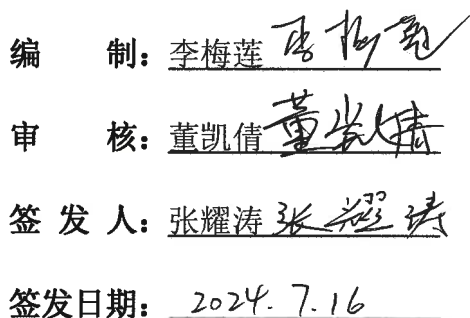 编 制：李梅莲 李梅莲
审 核：董凯倩 董凯倩
签 发 人：张耀涛 张耀涛
签发日期：2024.7.16